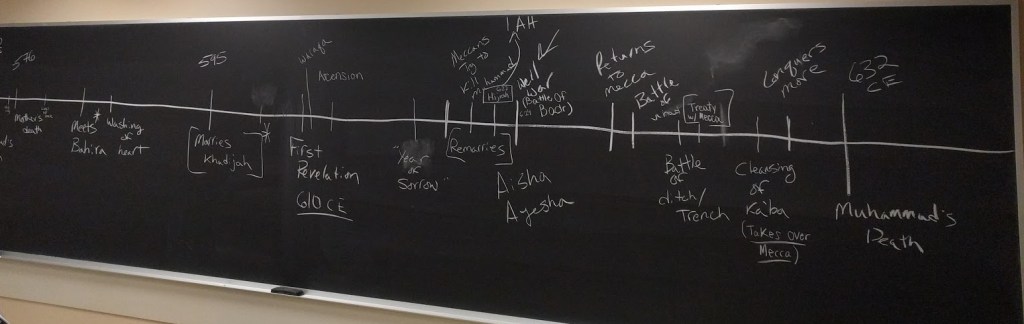 570
Mother's
death
Meets
Bahira
Washing
of
heart
595
Marries
Khadijah
Ascension
First
Revelation
610 CE
"Year
of
Sorrow"
Meccans
Try to
Kill Muhammad
Hijrah
1 AH
Remarries
Aisha
Ayesha
Well
War
(Battle of
Badr)
Returns
To
mecca
Battle
of
Treaty
w/ Mecca
Battle
of
ditch/
Trench
Conquers
more
Cleansing
of
Ka'ba
(Takes over
Mecca)
632
CE
Muhammad's
Death